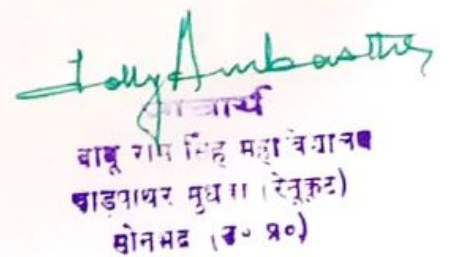 Jolly Ambasth
प्राचार्य
बाबू राम सिंह महाविद्यालय
खाड़पाथर मुर्धवा (रेनूकूट)
सोनभद्र (उ० प्र०)